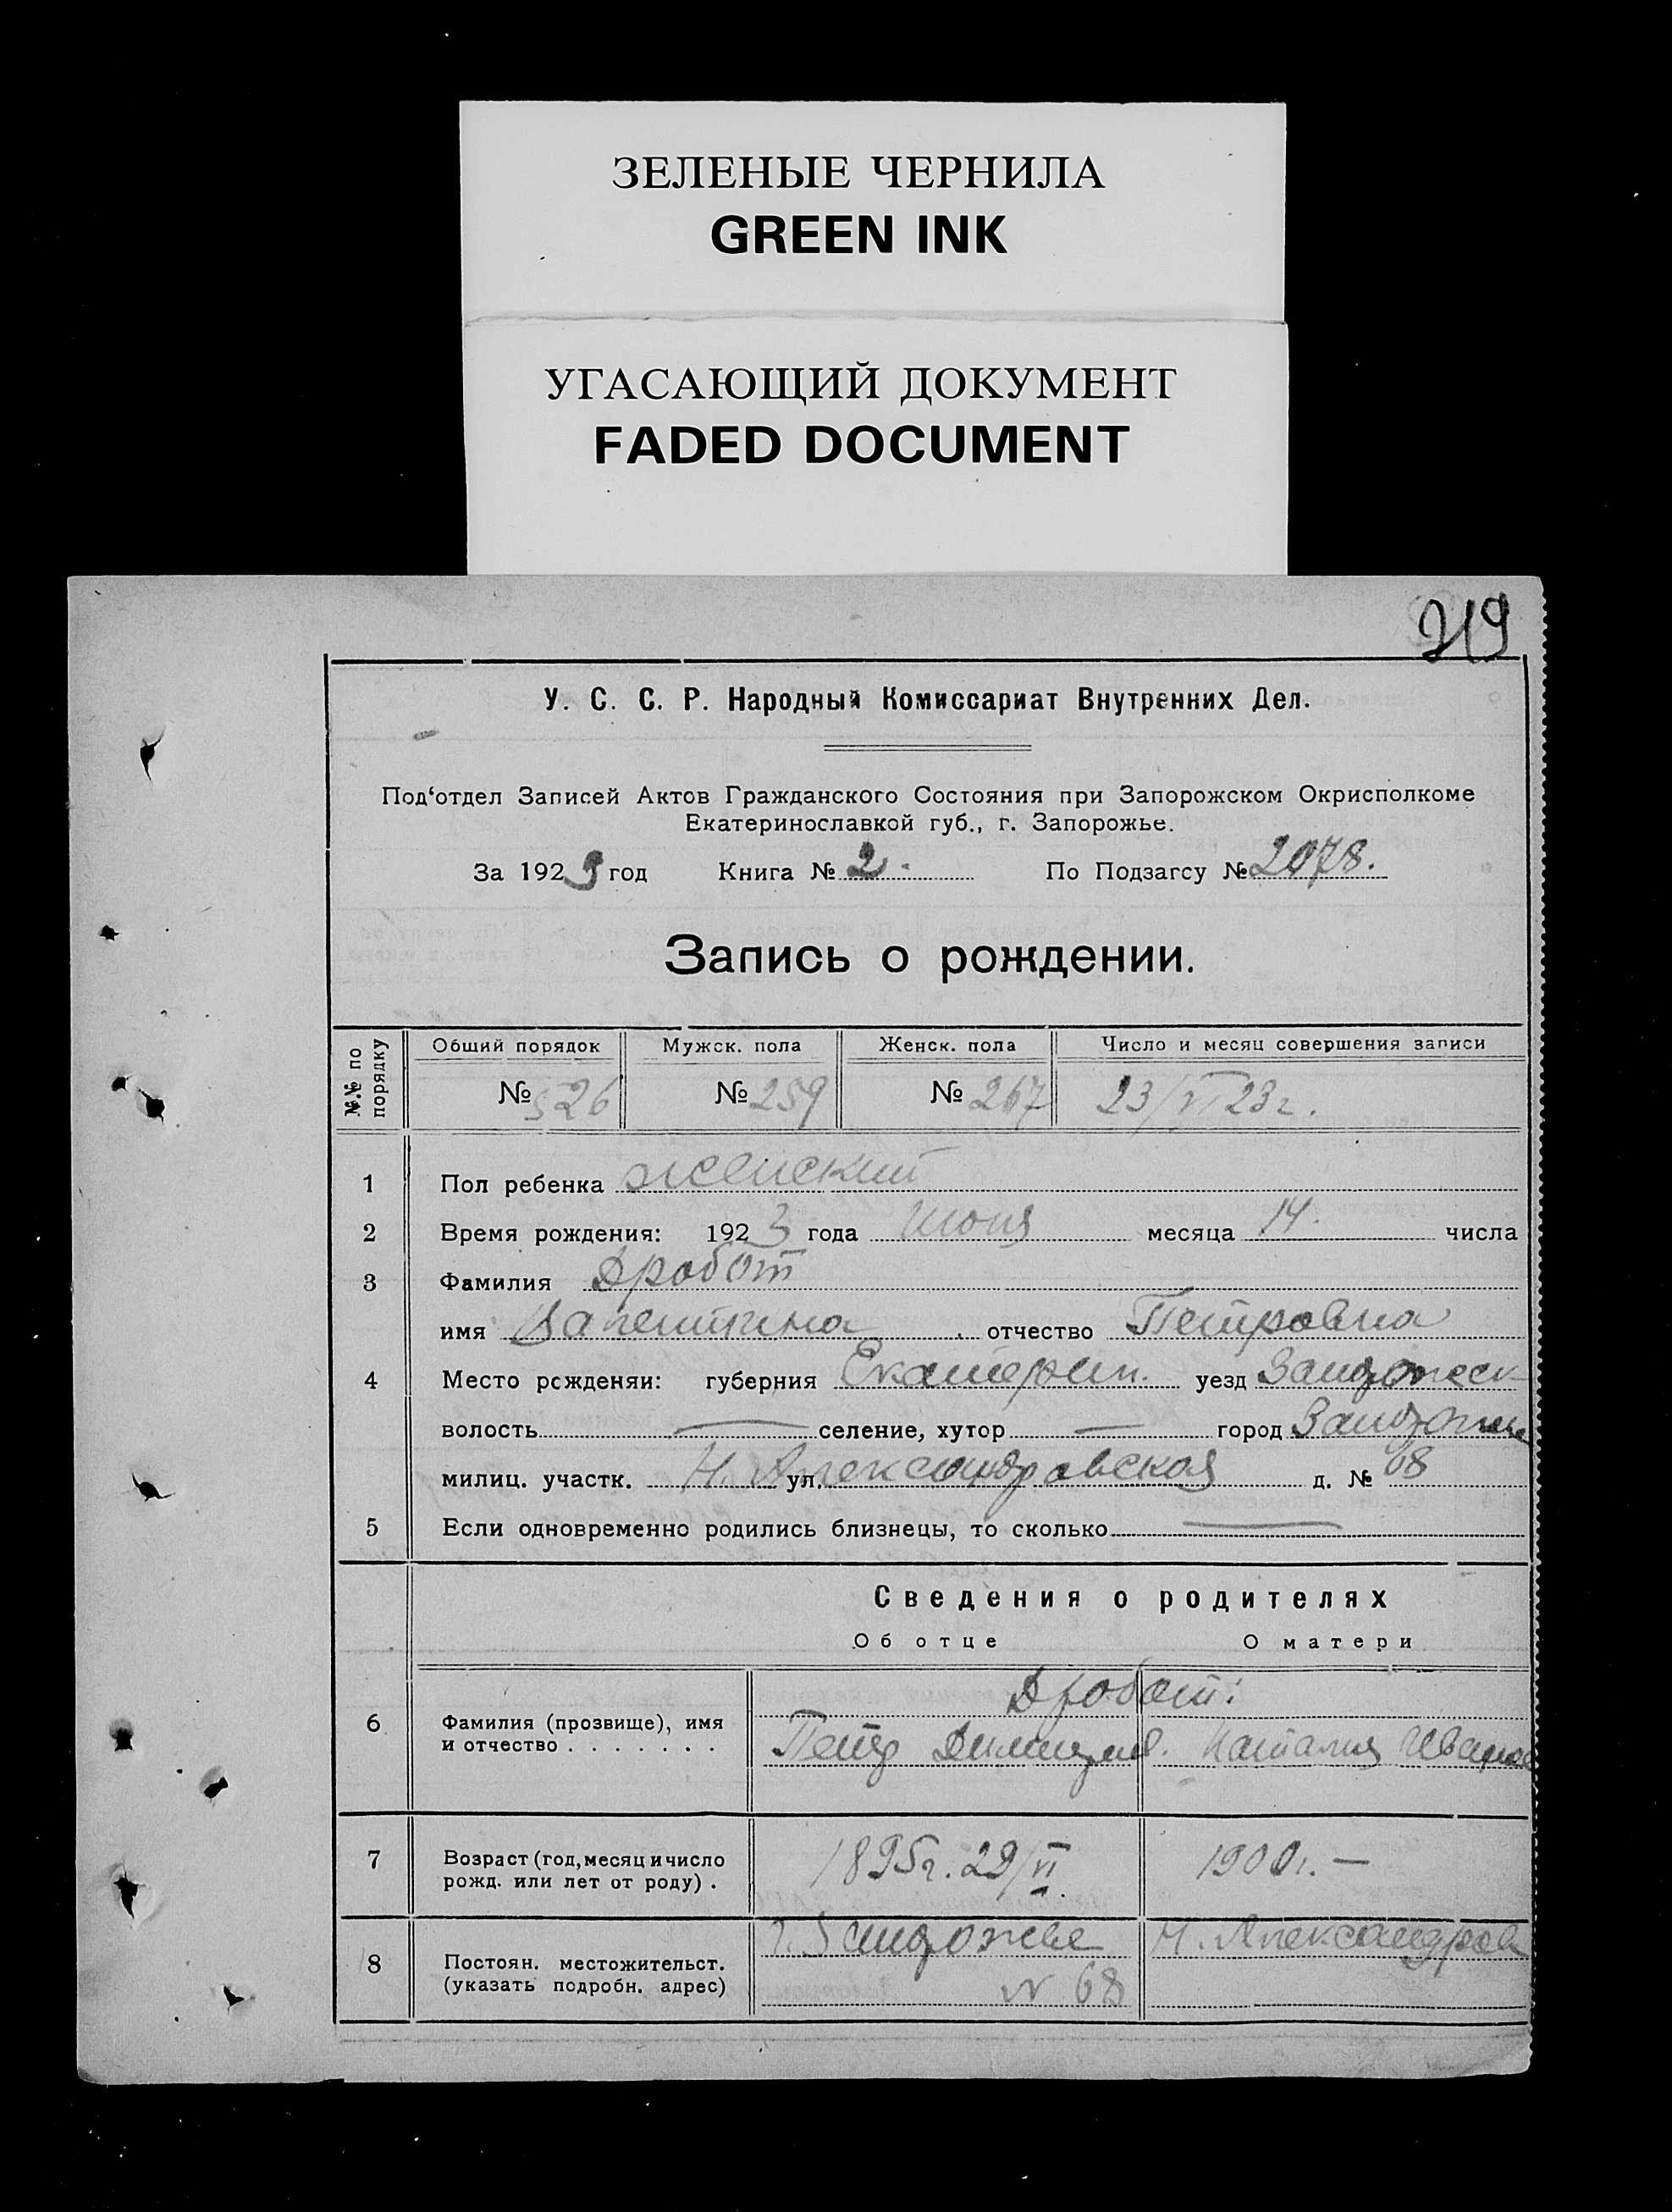 ЗЕЛЕНЫЕ ЧЕРНИЛА
GREEN INK
УГАСАЮЩИЙ ДОКУМЕНТ
FADED DOCUMENT
219
У. С. С. Р. Народный Комиссариат Внутренних Дел.
Под‘отдел Записей Актов Гражданского Состояния при Запорожском Окрисполкоме
Екатеринославкой губ., г. Запорожье.
За 1923 год Книга № 2. По Подзагсу № 2078.
Запись о рождении.
№№ по порядку Общий порядок Мужск. пола Женск. пола Число и месяц совершения записи
№ 526 № 259 № 267 23/VI 23 г.
1 Пол ребенка женский
2 Время рождения: 1923 года июня месяца 14. числа
3 Фамилия Дробот
имя Валентина отчество Петровна
4 Место рожденяи: губерния Екатерин. уезд Запорожск
волость — селение, хутор — город Запорожье
милиц. участк. Н. Александровская ул. д. № 68
5 Если одновременно родились близнецы, то сколько —
Сведения о родителях
Об отце О матери
Дробот:
6 Фамилия (прозвище), имя
и отчество . . . . . . . Петр Димитров. Наталия Иванов
7 Возраст (год, месяц и число
рожд. или лет от роду) . 1895 г. 29/VI. 1900 г. —
г. Запорожье Н. Александров
8 Постоян. местожительст.
(указать подробн. адрес) N 68